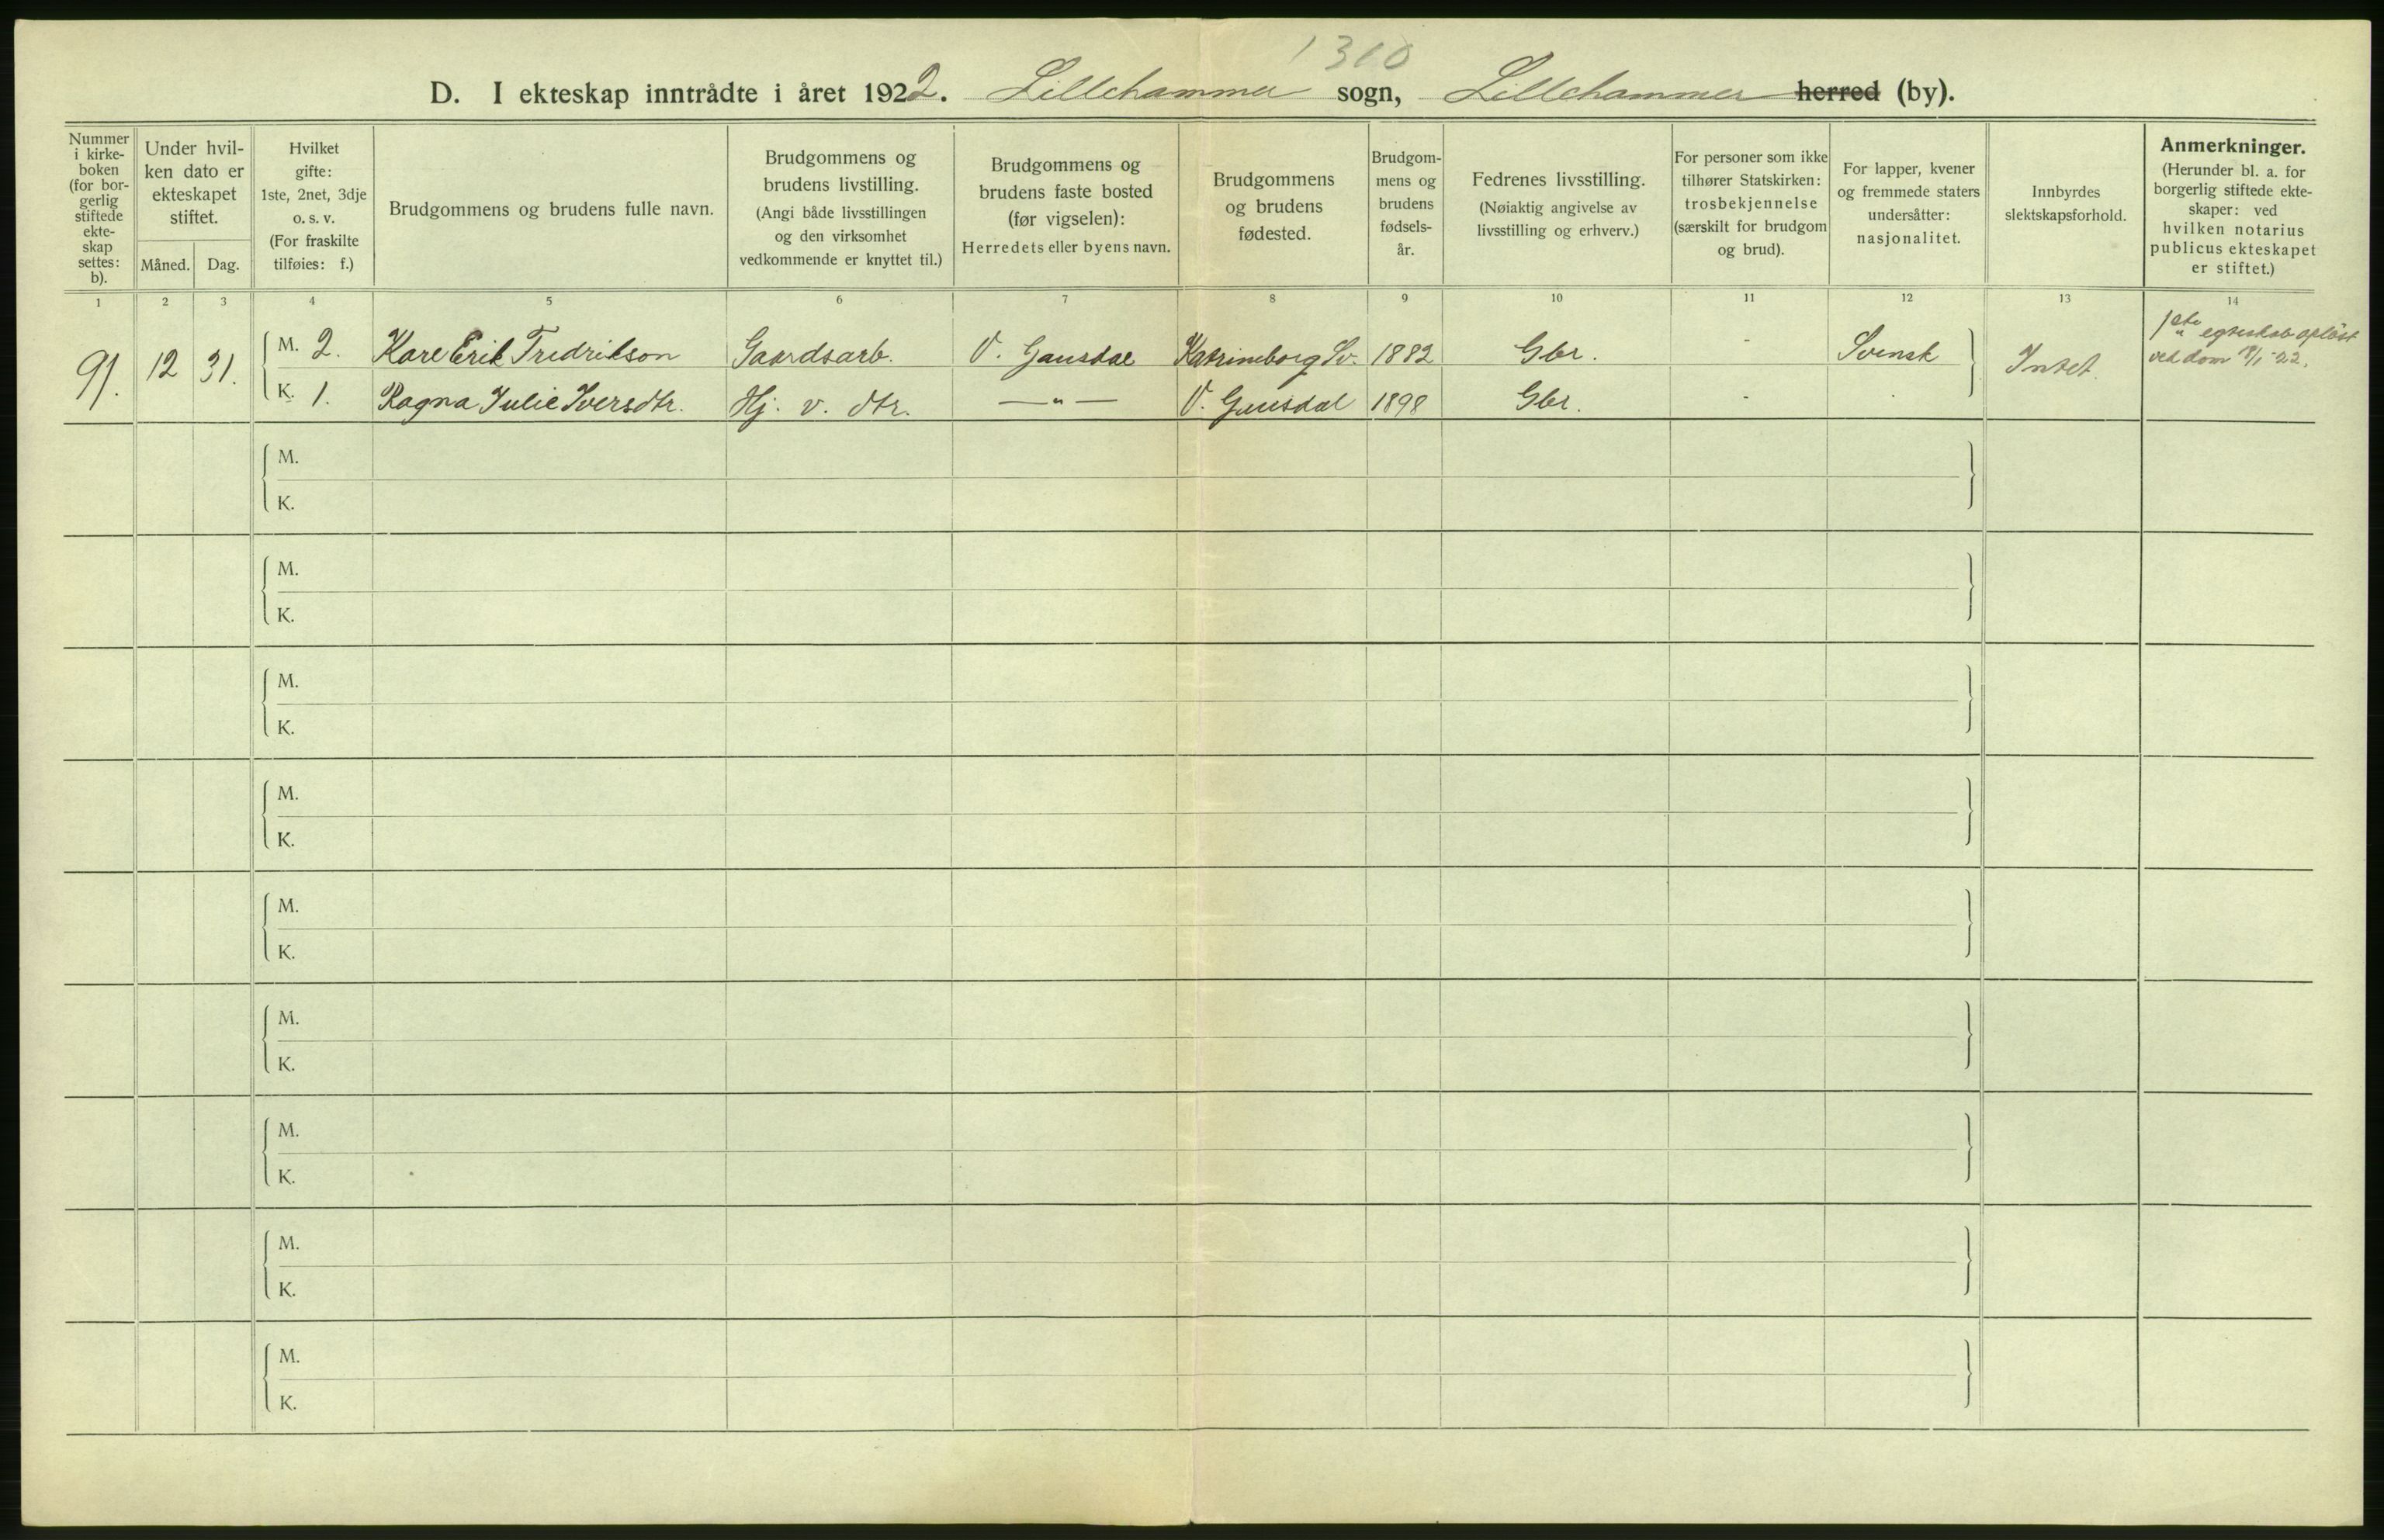 1310
D. I ekteskap inntrådte i året 1922. Lillehammer sogn, Lillehammer herred (by).
Nummer i kirke-boken (for bor-gerlig stiftede ekte-skap settes: b).
Under hvil-ken dato er ekteskapet stiftet.
Måned. Dag.
Hvilket gifte: 1ste, 2net, 3dje o. s. v. (For fraskilte tilføies: f.)
Brudgommens og brudens fulle navn.
Brudgommens og brudens livstilling. (Angi både livsstillingen og den virksomhet vedkommende er knyttet til.)
Brudgommens og brudens faste bosted (før vigselen): Herredets eller byens navn.
Brudgommens og brudens fødested.
Brudgom-mens og brudens fødsels-år.
Fedrenes livsstilling. (Nøiaktig angivelse av livsstilling og erhverv.)
For personer som ikke tilhører Statskirken: trosbekjennelse (særskilt for brudgom og brud).
For lapper, kvener og fremmede staters undersåtter: nasjonalitet.
Innbyrdes slektskapsforhold.
Anmerkninger. (Herunder bl. a. for borgerlig stiftede ekte-skaper: ved hvilken notarius publicus ekteskapet er stiftet.)
1 2 3 4 5 6 7 8 9 10 11 12 13 14
91. 12 31. M. 2. Kare Erik Fredrikson Gaardsarb. V. Gausdal Katrineborg Sv. 1882 Gbr. - Svensk Intet. 1ste egteskab opløst
ved dom -22.
K. 1. Ragna Julie Iversdtr. Hj. v. dtr. — " — V. Gausdal 1898 Gbr. - .
M.
K.
M.
K.
M.
K.
M.
K.
M.
K.
M.
K.
M.
K.
M.
K.
M.
K.